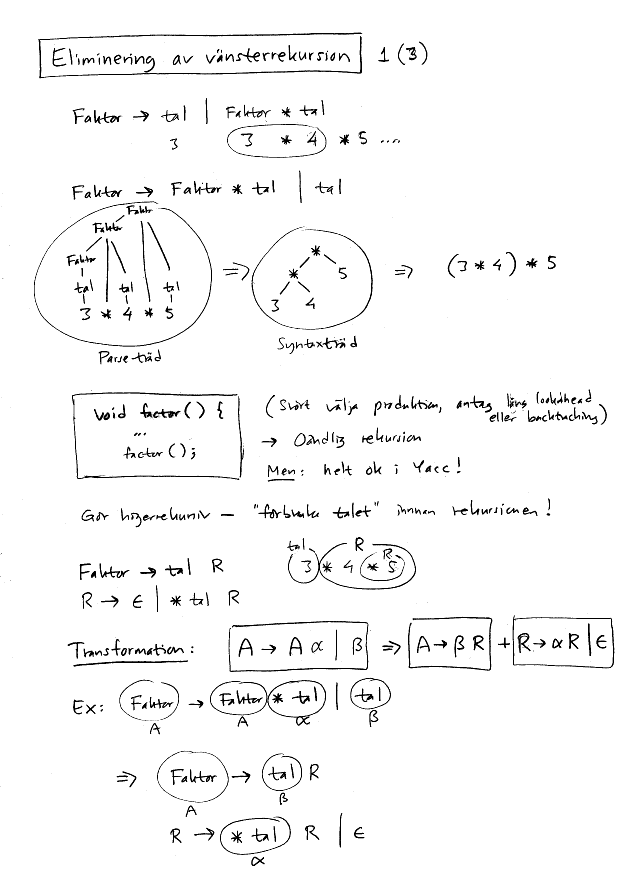 Eliminering av vänsterrekursion 1 (3)
Faktor → tal | Faktor * tal
3 3 * 4 * 5 ....
Faktor → Faktor * tal | tal
Faktor
Faktor
Faktor
tal tal tal
3 * 4 * 5
Parseträd
⇒
*
* 5
3 4
Syntaxträd
⇒ (3 * 4) * 5
void factor() {
...
factor();
(Svårt välja produktion, antag lång lookahead
eller backtracking)
→ Oändlig rekursion
Men: helt ok i Yacc!
Gör högerrekursiv — "förbruka talet" innan rekursionen!
Faktor → tal R
R → ϵ | * tal R
tal R
R
3 * 4 * 5
Transformation: A → A α | β ⇒ A → β R + R → α R | ϵ
Ex: Faktor → Faktor * tal | tal
A A α β
⇒ Faktor → tal R
A β
R → * tal R | ϵ
α